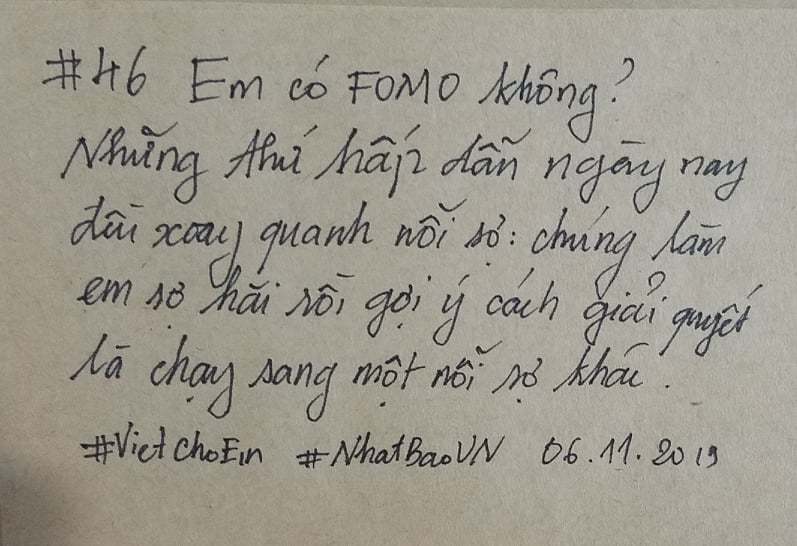 #46 Em có FOMO không?
Những thứ hấp dẫn ngày nay
đều xoay quanh nỗi sợ: chúng làm
em sợ hãi rồi gợi ý cách giải quyết
là chạy sang một nỗi sợ khác.
#VietChoEm #NhatBaoVN 06.11.2019